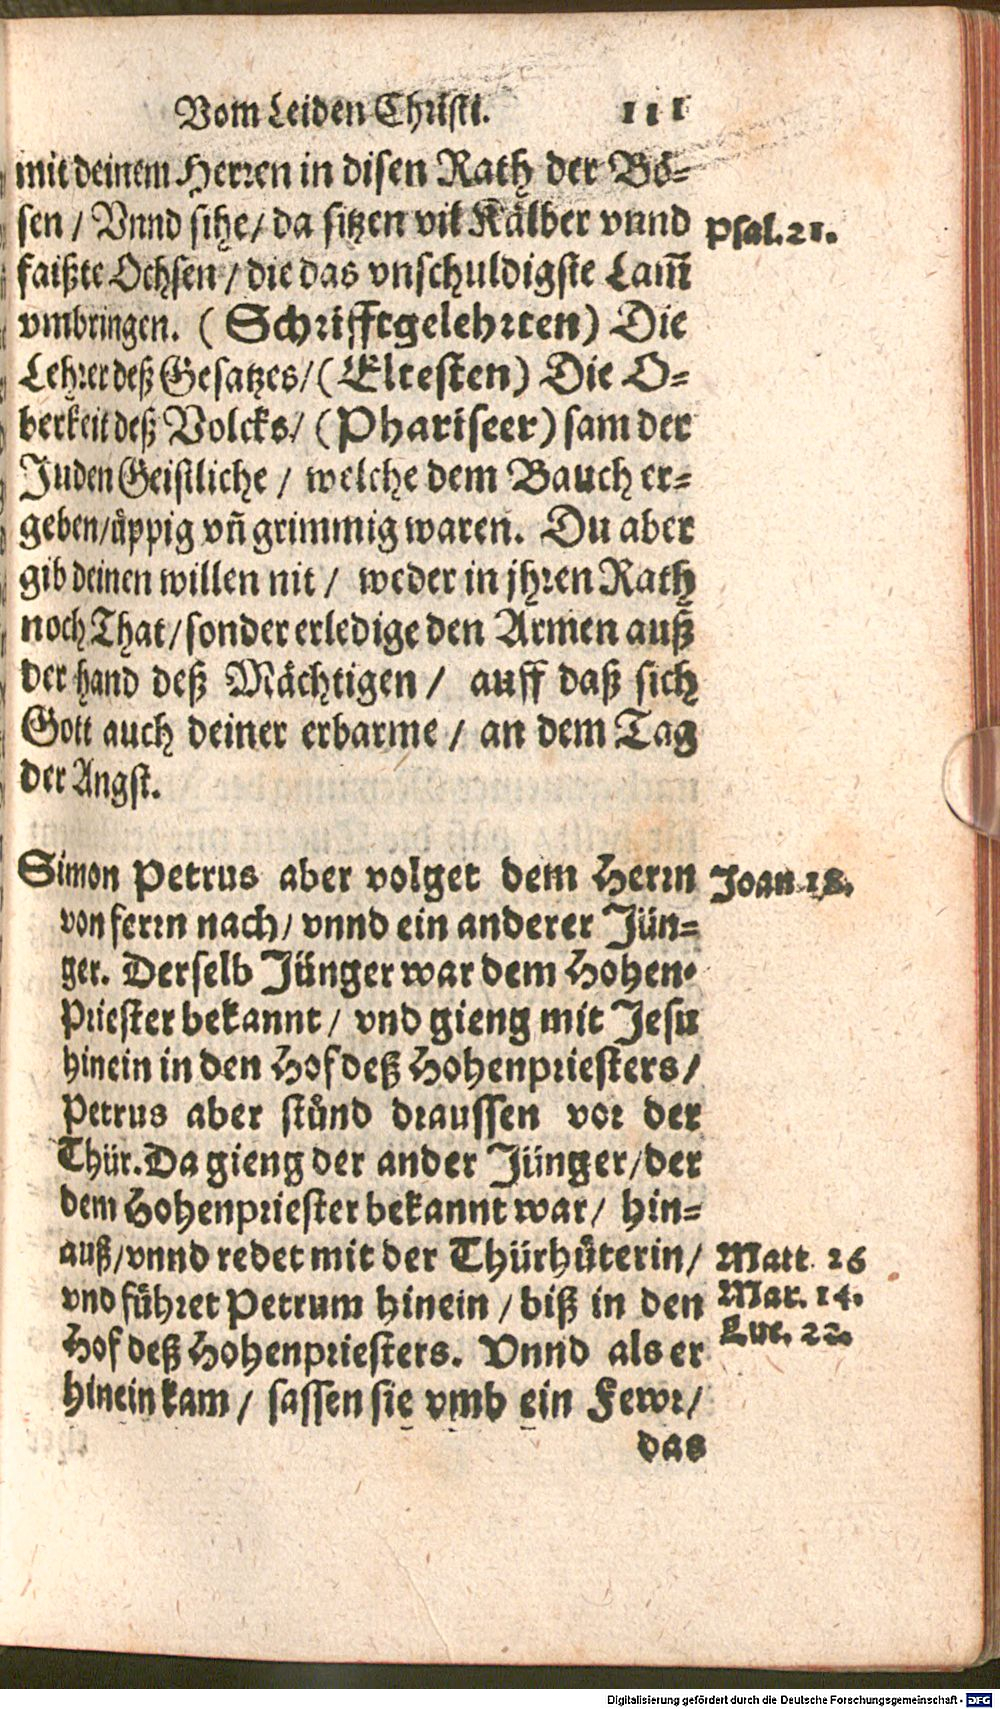 Vom Leiden Christi. 111
mit deinem Herren in disen Rath der Bö-
sen / Vnnd sihe / da sitzen vil Kälber vnnd
Psal. 21.
faißte Ochsen / die das vnschuldigste Lam̃
vmbringen. ( Schrifftgelehrten ) Die
Lehrer deß Gesatzes / ( Eltesten ) Die O-
berkeit deß Volcks / ( Phariseer ) sam der
Juden Geistliche / welche dem Bauch er-
geben / üppig vñ grimmig waren. Du aber
gib deinen willen nit / weder in jhren Rath
noch That / sonder erledige den Armen auß
der hand deß Mächtigen / auff daß sich
Gott auch deiner erbarme / an dem Tag
der Angst.
Simon Petrus aber volget dem Herrn
Joan 18.
von ferrn nach / vnnd ein anderer Jün-
ger. Derselb Jünger war dem Hohen-
Priester bekannt / vnd gieng mit Jesu
hinein in den Hof deß Hohenpriesters /
Petrus aber stůnd draussen vor der
Thür. Da gieng der ander Jünger / der
dem Hohenpriester bekannt war / hin-
auß / vnnd redet mit der Thürhüterin /
Matt. 26
vnd führet Petrum hinein / biß in den
Mar. 14.
Hof deß Hohenpriesters. Vnnd als er
Luc. 22.
hinein kam / sassen sie vmb ein Fewr /
das
Digitalisierung gefördert durch die Deutsche Forschungsgemeinschaft - DFG